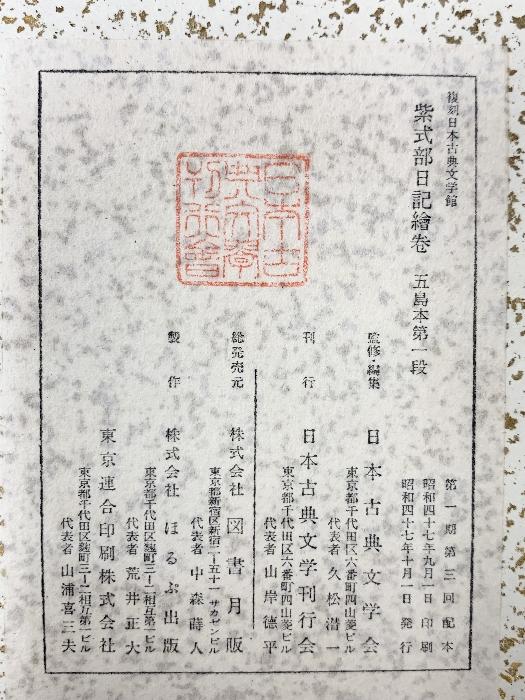 復刻日本古典文学館
紫式部日記繪卷　五島本第一段
第一期第三回配本
昭和四十七年九月一日印刷
昭和四十七年十月一日発行
監修・編集　日本古典文学会
東京都千代田区六番町四山菱ビル
代表者　久松潜一
刊行　日本古典文学刊行会
東京都千代田区六番町四山菱ビル
代表者　山岸德平
総発売元　株式会社　図書月販
東京都新宿区新宿二ー五十一　サカゼンビル
代表者　中森蒔人
製作　株式会社　ほるぷ出版
東京都千代田区麹町三ー二相互第一ビル
代表者　荒井正大
東京連合印刷株式会社
東京都千代田区麹町三ー二相互第一ビル
代表者　山浦喜三夫
日本古
典文學
刊行會